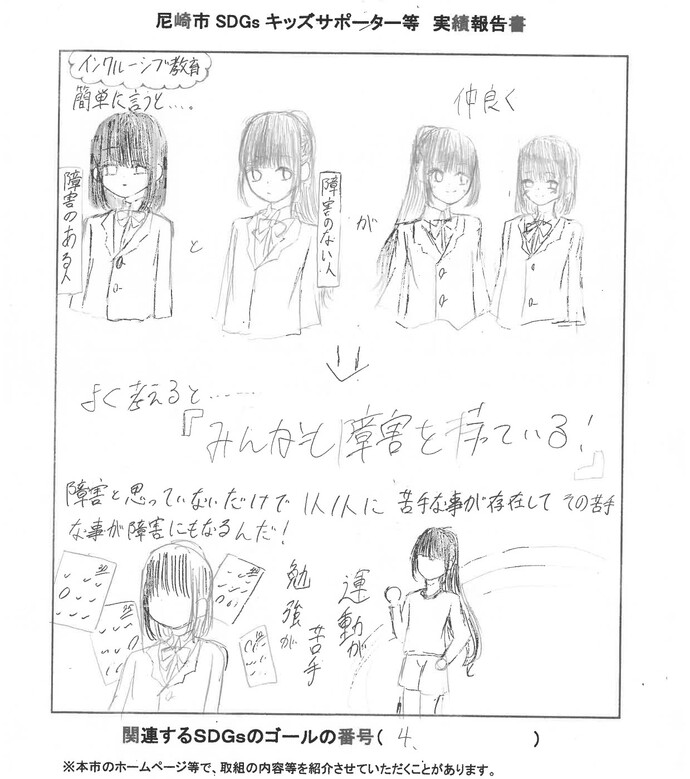 尼崎市 SDGs キッズサポーター等　実績報告書
インクルーシブ教育
簡単に言うと…。
仲良く
障害のある人
と
障害のない人
が
よく考えると……
『みんなも障害を持っている!』
障害と思っていないだけで 1人1人に 苦手な事が存在して その苦手
な事が障害にもなるんだ!
勉強が
苦手
運動が
関連するSDGsのゴールの番号( 4、 )
※本市のホームページ等で、取組の内容等を紹介させていただくことがあります。